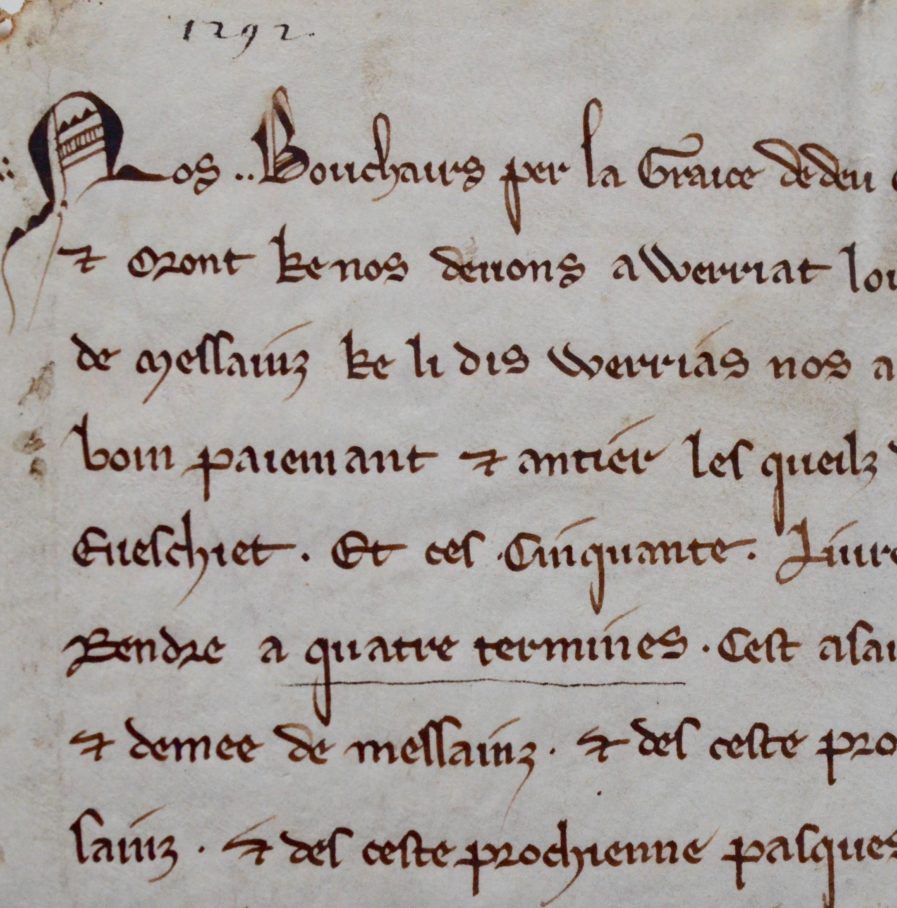 1292.
Nos .. Bouchairs per la Graice de deu
⁊ oront ke nos deuons a Werriat lou
de messainz ke li dis Werrias nos a
boin paiemant ⁊ antier les queilz
Eueschiet . Et ces . Cinquante . Liure
Rendre a quatre termines . Cest asau
⁊ demee de messainz . ⁊ des ceste pro
sainz . ⁊ des ceste prochienne pasques